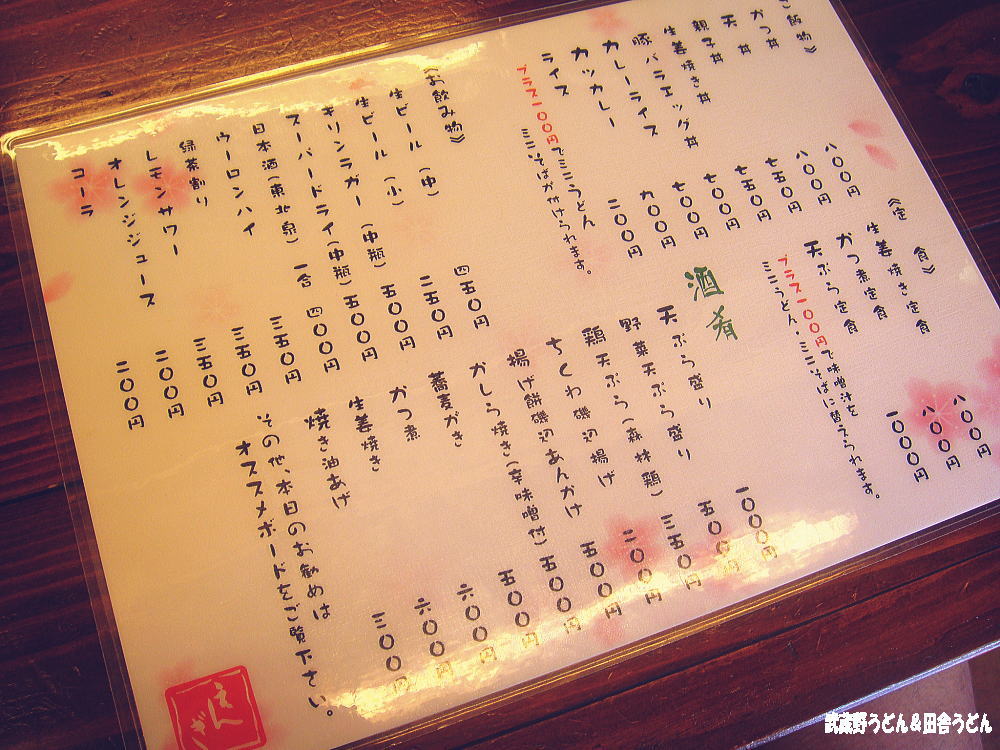 ご飯物》
かつ丼 八〇〇円
天丼 八〇〇円
親子丼 七五〇円
生姜焼き丼 七五〇円
豚バラエッグ丼 七〇〇円
カレーライス 七〇〇円
カツカレー 九〇〇円
ライス 二〇〇円
プラス一〇〇円でミニうどん
ミニそばが付けられます。
《定 食》
生姜焼き定食 八〇〇円
かつ煮定食 八〇〇円
天ぷら定食 一〇〇〇円
プラス一〇〇円で味噌汁を
ミニうどん・ミニそばに替えられます。
《お飲み物》
生ビール (中) 四五〇円
生ビール (小) 二五〇円
キリンラガー (中瓶) 五〇〇円
スーパードライ(中瓶) 五〇〇円
日本酒(東北泉) 一合 四〇〇円
ウーロンハイ 三五〇円
緑茶割り 三五〇円
レモンサワー 三五〇円
オレンジジュース 二〇〇円
コーラ 二〇〇円
酒肴
天ぷら盛り 一〇〇〇円
野菜天ぷら盛り 五〇〇円
鶏天ぷら(森林鶏) 三五〇円
ちくわ磯辺揚げ 二〇〇円
揚げ餅磯辺あんかけ 五〇〇円
かしら焼き(辛味噌付) 五〇〇円
蕎麦がき 五〇〇円
かつ煮 六〇〇円
生姜焼き 六〇〇円
焼き油あげ 三〇〇円
その他、本日のお勧めは
オススメボードをご覧下さい。
えんぎ
武蔵野うどん&田舎うどん